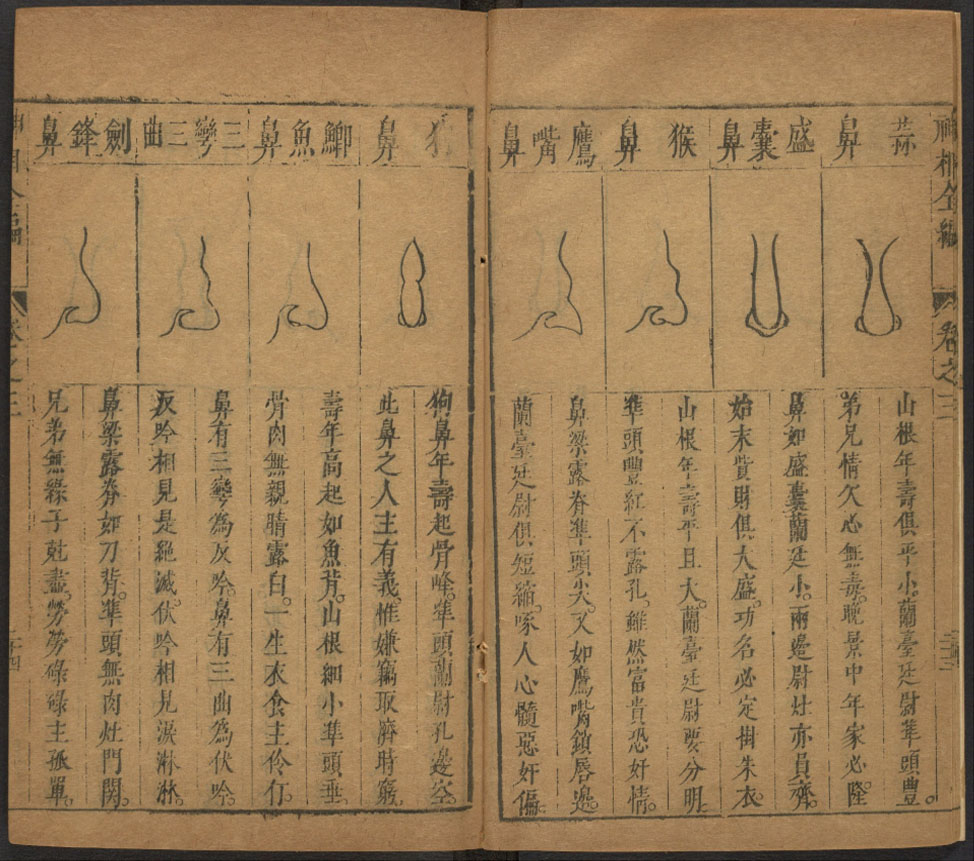 神相全編
卷之三
蒜鼻
山根年壽俱平小。蘭臺廷尉準頭豐。
弟兄情欠必無毒。晚景中年家必隆
盛囊鼻
鼻如盛囊蘭廷小。兩邊尉灶亦員齊。
始末貲財俱大盛。功名必定掛朱衣。
猴鼻
山根年壽平且大。蘭臺廷尉要分明。
準頭豐紅不露孔。雖然富貴恐奸情。
鷹嘴鼻
鼻梁露脊準頭尖。又如鷹嘴鎖唇邊。
蘭臺廷尉俱短縮。啄人心髓惡奸偏。
狗鼻
狗鼻年壽起骨峰。準頭蘭尉孔邊空。
此鼻之人主有義。惟嫌竊取濟時窮。
鯽魚鼻
壽年高起如魚背。山根細小準頭垂。
骨肉無親睛露白。一生衣食主伶仃。
三彎三曲
鼻有三彎為反吟。鼻有三曲為伏吟。
反吟相見是絕滅。伏吟相見淚淋淋。
劍鋒鼻
鼻梁露脊如刀背。準頭無肉灶門開。
兄弟無緣子尅盡。勞勞碌碌主孤單。
卷之三